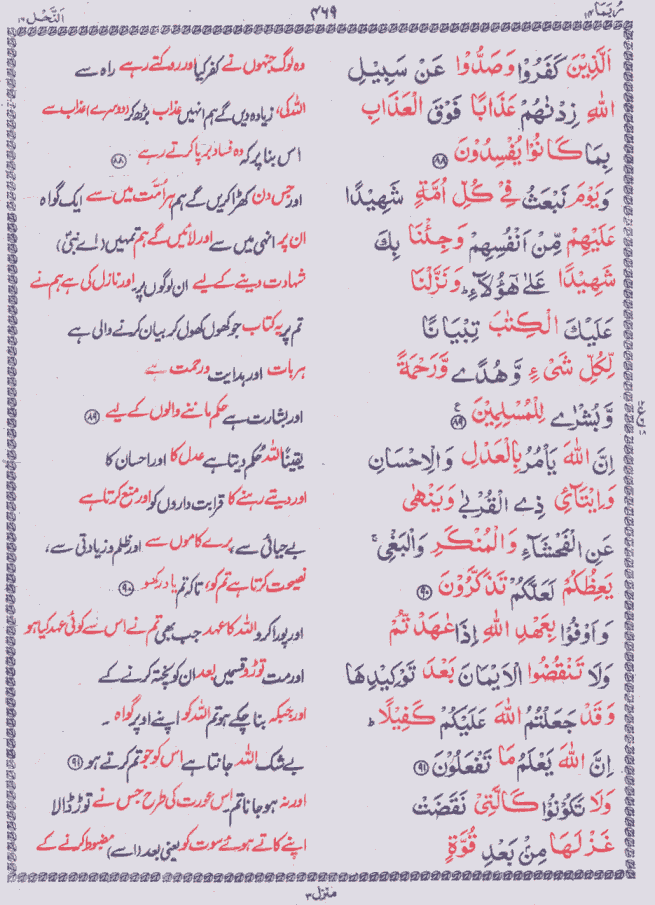 رُبَمَا ۱۴ ۴۶۹ اَلنَّحۡل ۱۶
اَلَّذِیۡنَ کَفَرُوۡا وَصَدُّوۡا عَنۡ سَبِیۡلِ وہ لوگ جنہوں نے کفر کیا اور روکتے رہے راہ سے
اللّٰهِ زِدۡنٰهُمۡ عَذَابًا فَوۡقَ الۡعَذَابِ اللہ کی، زیادہ دیں گے ہم انہیں عذاب بڑھ کر (دوسرے) عذاب سے
بِمَا کَانُوۡا یُفۡسِدُوۡنَ ﴿۸۸﴾ اس بنا پر کہ وہ فساد برپا کرتے رہے ﴿۸۸﴾
وَیَوۡمَ نَبۡعَثُ فِیۡ کُلِّ اُمَّةٍ شَهِیۡدًا اور جس دن کھڑا کریں گے ہم ہر اُمّت میں سے ایک گواہ
عَلَیۡهِمۡ مِّنۡ اَنۡفُسِهِمۡ وَجِئۡنَا بِكَ ان پر انہی میں سے اور لائیں گے ہم تمہیں (اے نبیؐ)
شَهِیۡدًا عَلٰی هٰۤؤُلَآءِ ؕ وَنَزَّلۡنَا شہادت دینے کے لیے ان لوگوں پر۔ اور نازل کی ہے ہم نے
عَلَیۡكَ الۡکِتٰبَ تِبۡیَانًا تم پر یہ کتاب جو کھول کھول کر بیان کرنے والی ہے
لِّکُلِّ شَیۡءٍ وَّهُدًی وَّرَحۡمَةً ہر بات اور ہدایت و رحمت ہے
وَّبُشۡرٰی لِلۡمُسۡلِمِیۡنَ ﴿۸۹﴾ اور بشارت ہے حکم ماننے والوں کے لیے ﴿۸۹﴾
اِنَّ اللّٰهَ یَاۡمُرُ بِالۡعَدۡلِ وَالۡاِحۡسَانِ یقینًا اللہ حُکم دیتا ہے عدل کا اور احسان کا
وَاِیۡتَآئِ ذِی الۡقُرۡبٰی وَیَنۡهٰی اور دیتے رہنے کا قرابت داروں کو اور منع کرتا ہے
عَنِ الۡفَحۡشَآءِ وَالۡمُنۡکَرِ وَالۡبَغۡیِ ۚ بے حیائی سے، بُرے کاموں سے اور ظلم و زیادتی سے،
یَعِظُکُمۡ لَعَلَّکُمۡ تَذَکَّرُوۡنَ ﴿۹۰﴾ نصیحت کرتا ہے تم کو، تاکہ تم یاد رکھو ﴿۹۰﴾
وَاَوۡفُوۡا بِعَهۡدِ اللّٰهِ اِذَا عٰهَدۡتُّمۡ اور پورا کرو اللہ کا عہد جب بھی تم نے اس سے کوئی عہد کیا ہو
وَلَا تَنۡقُضُوا الۡاَیۡمَانَ بَعۡدَ تَوۡکِیۡدِهَا اور مت توڑو قسمیں بعد ان کو پُختہ کرنے کے
وَقَدۡ جَعَلۡتُمُ اللّٰهَ عَلَیۡکُمۡ کَفِیۡلًا ؕ اور جبکہ بنا چکے ہو تم اللہ کو اپنے اوپر گواہ ۔
اِنَّ اللّٰهَ یَعۡلَمُ مَا تَفۡعَلُوۡنَ ﴿۹۱﴾ بے شک اللہ جانتا ہے اس کو جو تم کرتے ہو ﴿۹۱﴾
وَلَا تَکُوۡنُوۡا کَالَّتِیۡ نَقَضَتۡ اور نہ ہو جانا تم، اس عورت کی طرح جس نے توڑ ڈالا
غَزۡلَهَا مِنۡۢ بَعۡدِ قُوَّةٍ اپنے کاتے ہوئے سُوت کو یعنی بعد (اسے) مضبوط کرنے کے
منزل ۳